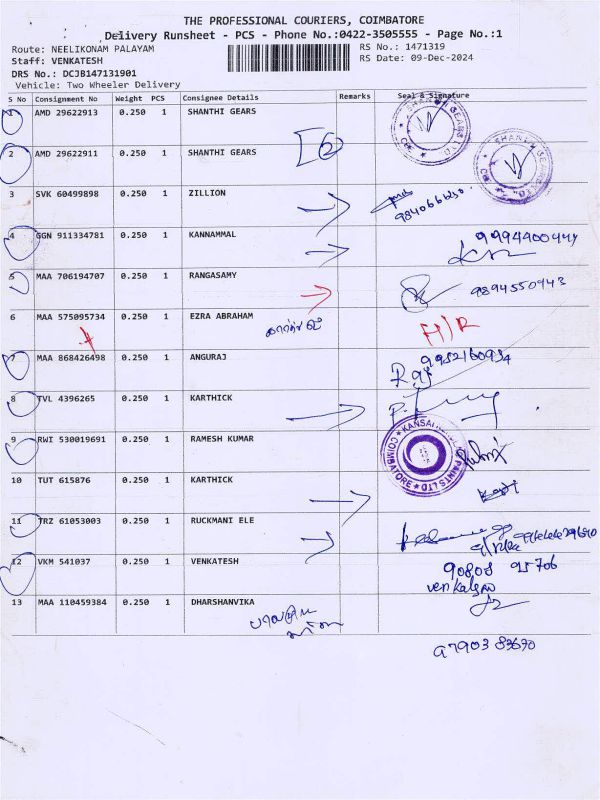 THE PROFESSIONAL COURIERS, COIMBATORE
Delivery Runsheet - PCS - Phone No.:0422-3505555 - Page No.:1
Route: NEELIKONAM PALAYAM RS No.: 1471319
Staff: VENKATESH RS Date: 09-Dec-2024
DRS No.: DCJB147131901
Vehicle: Two Wheeler Delivery
S No Consignment No Weight PCS Consignee Details Remarks Seal & Signature
1 AMD 29622913 0.250 1 SHANTHI GEARS
2 AMD 29622911 0.250 1 SHANTHI GEARS 2
SHANTHI GEARS LTD. CBE
SHANTHI GEARS LTD. CBE
3 SVK 60499898 0.250 1 ZILLION
4 GGN 911334781 0.250 1 KANNAMMAL 9994400444
5 MAA 706194707 0.250 1 RANGASAMY 9894550943
6 MAA 575095734 0.250 1 EZRA ABRAHAM
7 MAA 868426498 0.250 1 ANGURAJ 9952160934
Raj
8 TVL 4396265 0.250 1 KARTHICK
9 RWI 530019691 0.250 1 RAMESH KUMAR
KANSAI PAINTS LTD COIMBATORE
10 TUT 615876 0.250 1 KARTHICK
11 TRZ 61053003 0.250 1 RUCKMANI ELE
12 VKM 541037 0.250 1 VENKATESH 90808 95706
13 MAA 110459384 0.250 1 DHARSHANVIKA
97903 83670